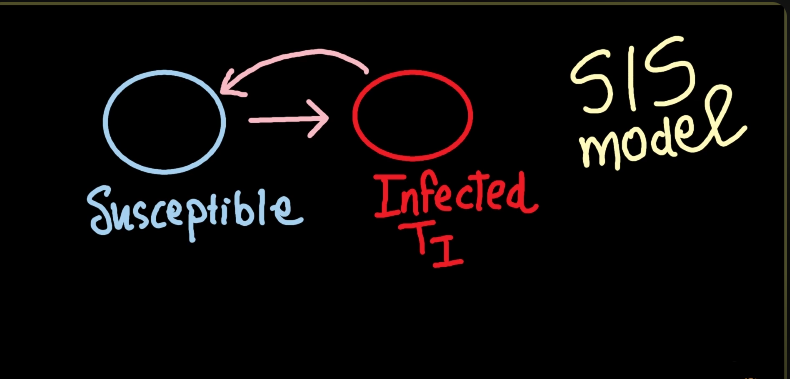 SIS
model
Susceptible
Infected
TI